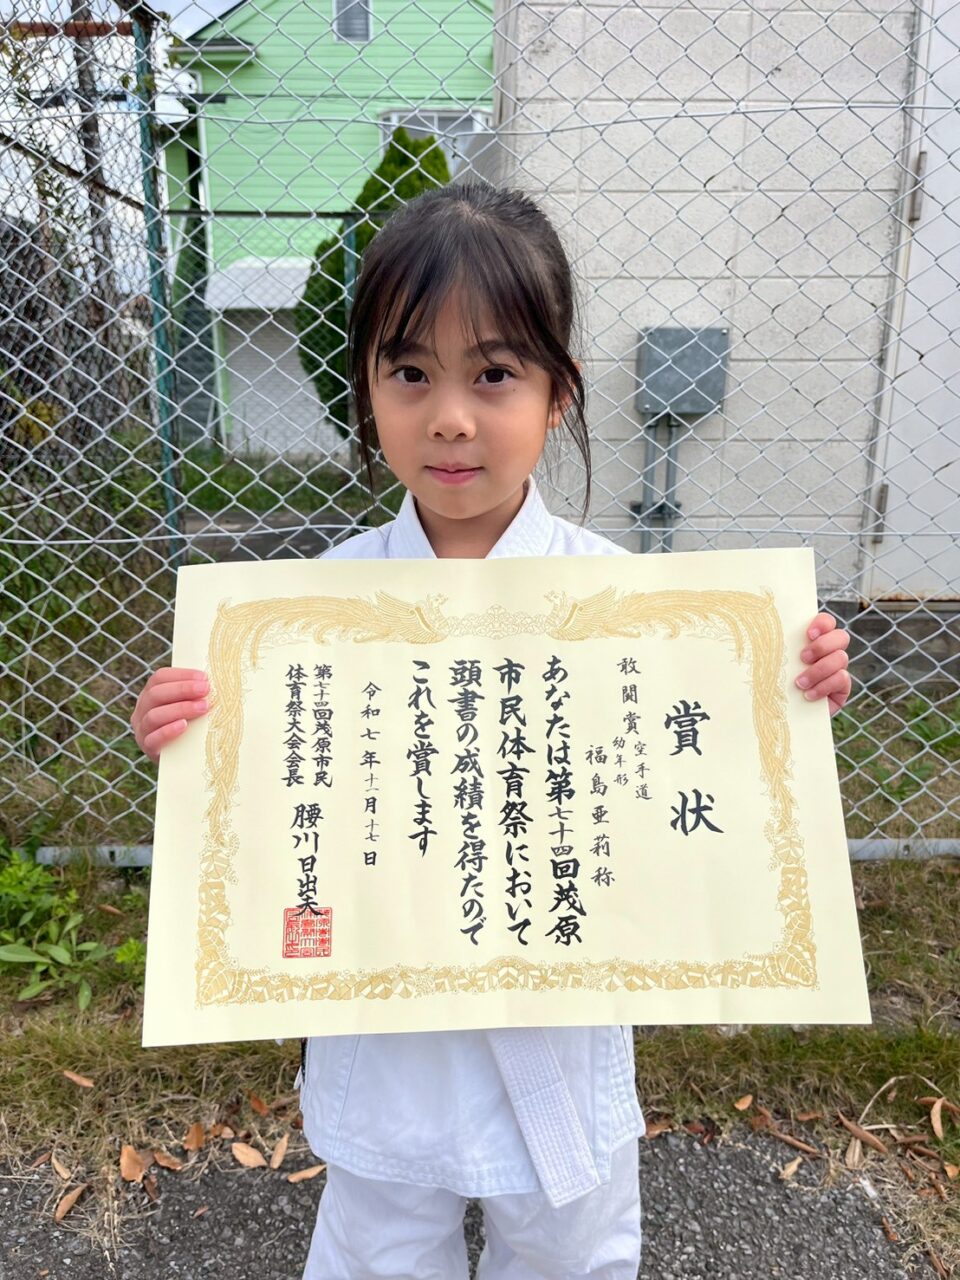 賞状
敢闘賞 空手道
幼年形
福島亜莉称
あなたは第七十四回茂原
市民体育祭において
頭書の成績を得たので
これを賞します
令和七年十一月十七日
第七十四回茂原市民
体育祭大会会長
腰川日出夫